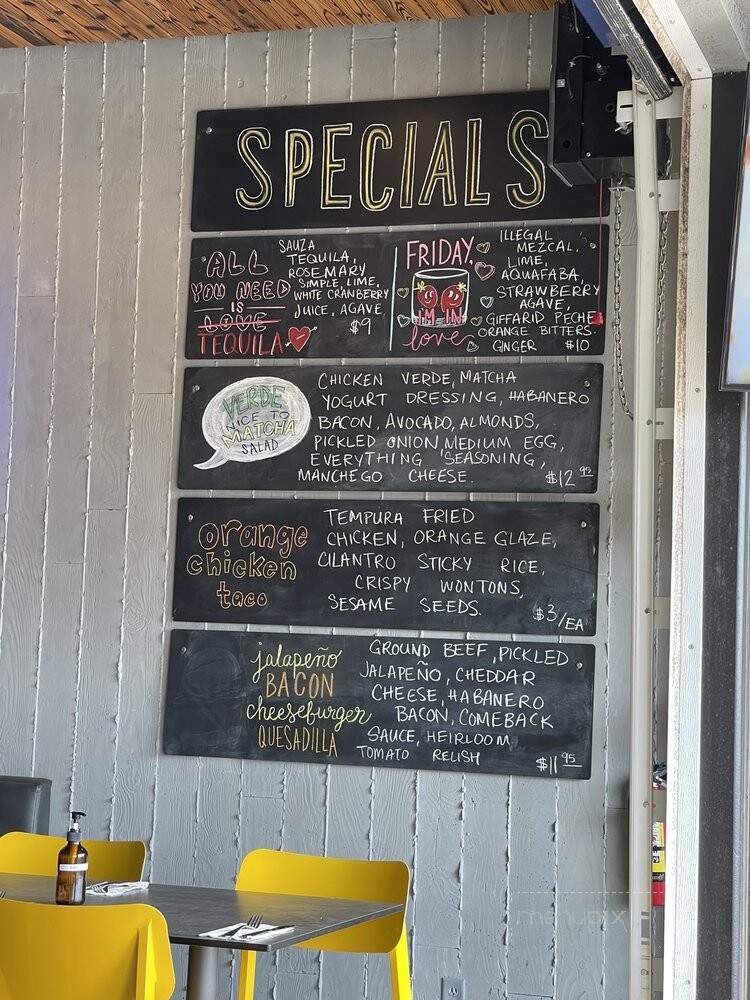 SPECIALS
ALL
YOU NEED
IS
LOVE
TEQUILA
SAUZA
TEQUILA,
ROSEMARY
SIMPLE, LIME,
WHITE CRANBERRY
JUICE, AGAVE
$9
FRIDAY,
I'M IN
love
ILLEGAL
MEZCAL,
LIME,
AQUAFABA,
STRAWBERRY
AGAVE,
GIFFARD PECHE
ORANGE BITTERS
GINGER $10
VERDE
NICE TO
MATCHA
SALAD
CHICKEN VERDE, MATCHA
YOGURT DRESSING, HABANERO
BACON, AVOCADO, ALMONDS,
PICKLED ONION, MEDIUM EGG,
EVERYTHING SEASONING,
MANCHEGO CHEESE. $12 95
orange
chicken
taco
TEMPURA FRIED
CHICKEN, ORANGE GLAZE,
CILANTRO STICKY RICE,
CRISPY WONTONS,
SESAME SEEDS.
$3/EA
jalapeño
BACON
cheeseburger
QUESADILLA
GROUND BEEF, PICKLED
JALAPEÑO, CHEDDAR
CHEESE, HABANERO
BACON, COMEBACK
SAUCE, HEIRLOOM
TOMATO RELISH
$11 95
menupix